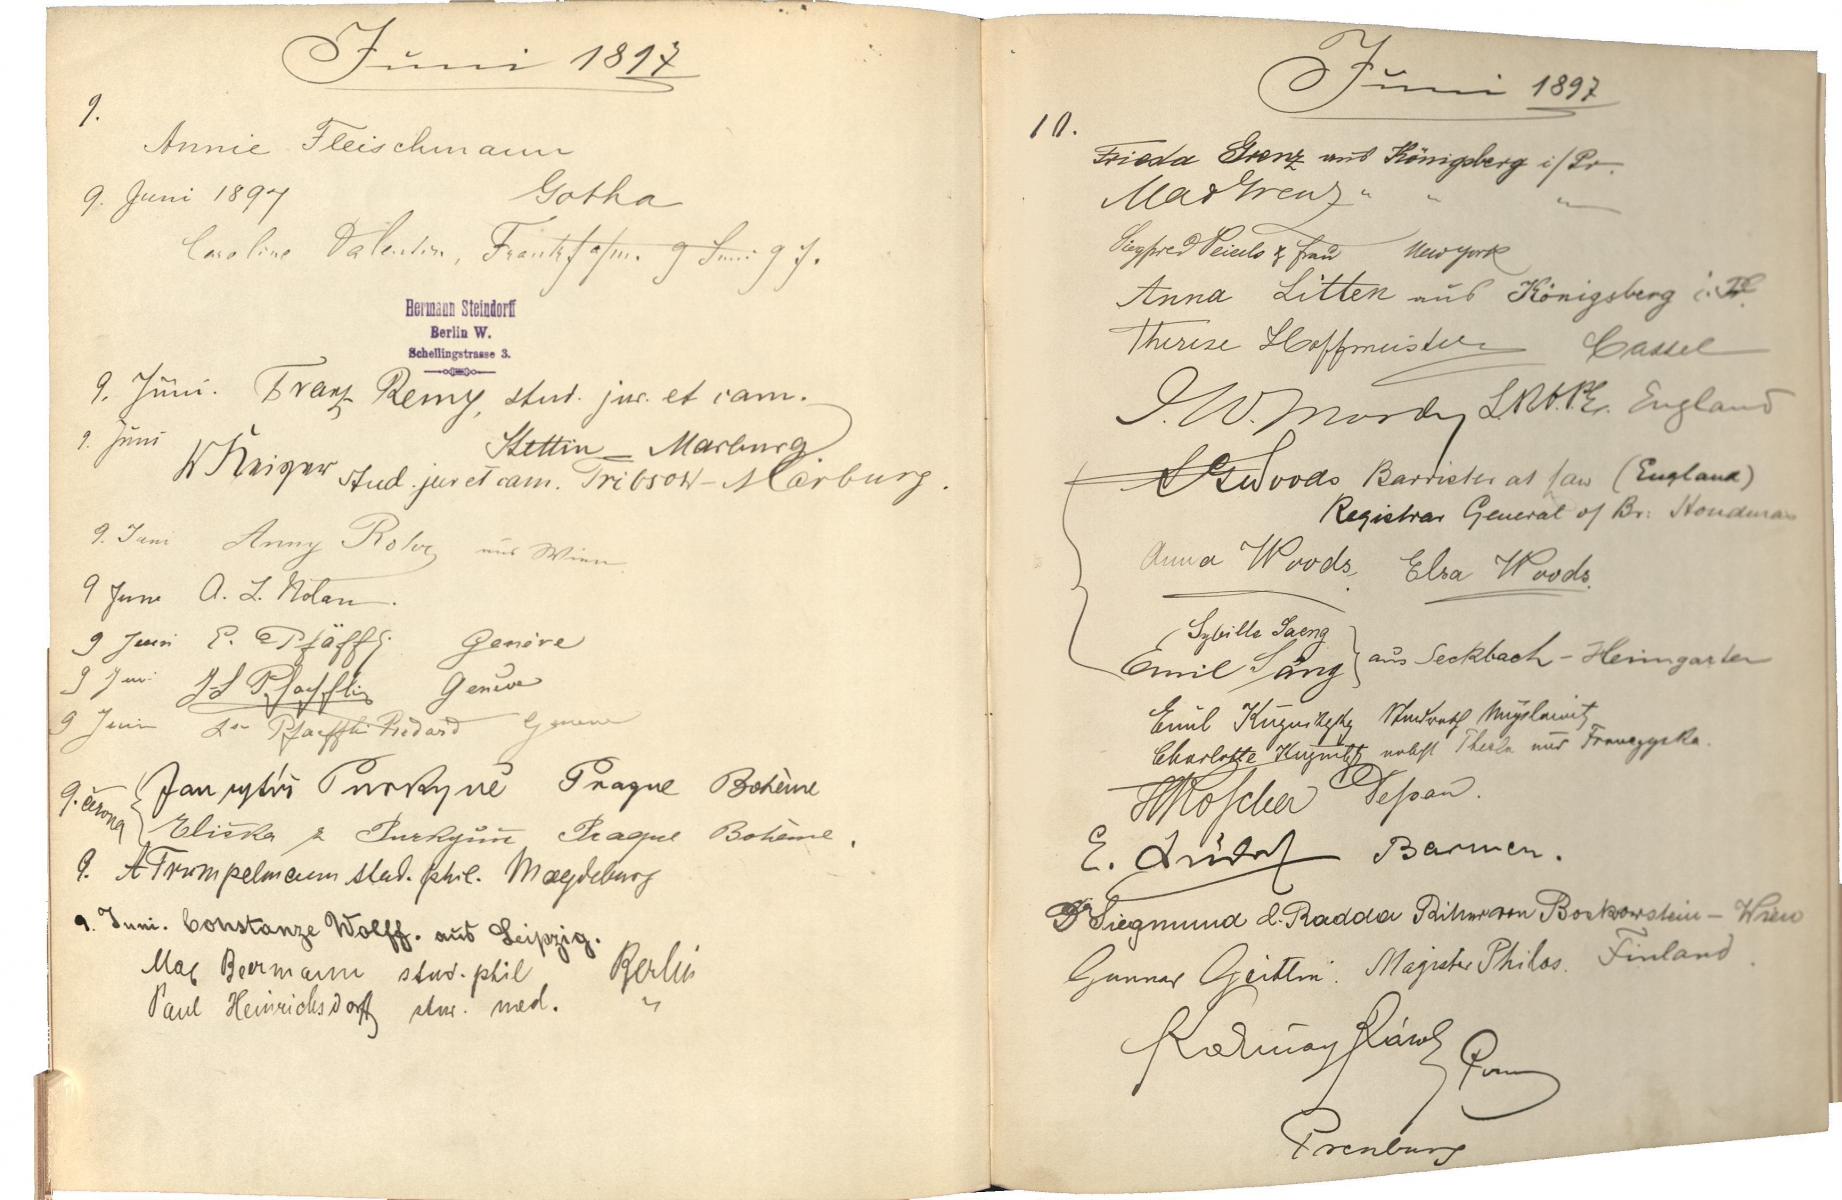 Juni 1897
9.
Annie Fleischmann
9. Juni 1897 Gotha
Caroline Valentin, Frankf a/m. 9 Juni 97.
Hermann Steindorff
Berlin W.
Schellingstrasse 3.
9. Juni. Franz Remy, stud. jur. et cam.
Stettin – Marburg.
9. Juni
W Keiper stud. jur et cam. Tribsow – Marburg.
9. Juni Anny aus Wien
9 June A. L. Nolan.
9 Juni E. Pfäffli Genève
9 Juni J-L Pfaeffli Genève
9 Juni Pfaeffli Piedard Genève
9. června Jan rytíř Purkyně Prague Bohème
Eliška z Purkyňů Prague Bohème.
9. A Trümpelmann stud. phil. Magdeburg
9. Juni. Constanze Wolff. aus Leipzig.
Max Beermann stud. phil Berlin
Paul Heinrichsdorff stud. med. "
Juni 1897
10.
Frieda Grenz aus Königsberg i/Pr.
Max Grenz " " "
Siegfried Peierls & Frau New York
Anna Litten aus Königsberg i. Pr.
Therese Hoffmeister Cassel
J. W. Mordey England
Woods Barrister at law (England)
Registrar General of Br: Honduras
Anna Woods, Elsa Woods.
Sybille Saeng
Emil Säng aus Seckbach – Heimgarten
Emil Kuznitzky Stadtrath Myslowitz
Charlotte Kuznitzky nebst Thekla und Franzyska.
Roscher Dessau.
E. Barmen.
Dr Siegmund d. Radda Ritter von Boskowstein – Wien
Gunnar Geitlin. Magister Philos. Finland.
Károly
Pressburg